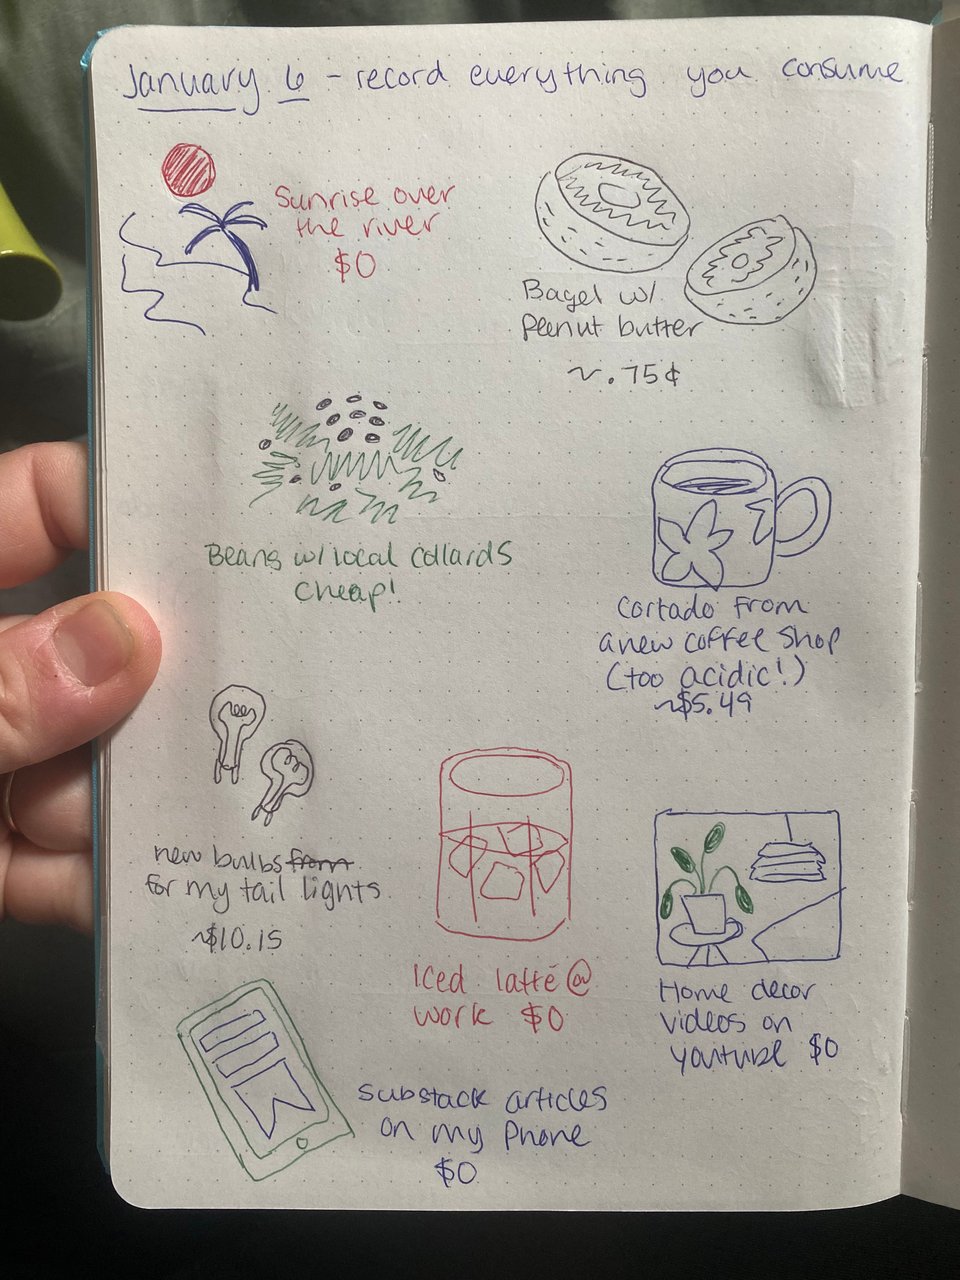 January 6 - record everything you consume
Sunrise over
the river
$0
Bagel w/
Peanut butter
~.75¢
Beans w/ local collards
cheap!
Cortado from
a new coffee shop
(too acidic!)
~$5.49
new bulbs from
for my tail lights
~$10.15
Iced latté @
work $0
Home decor
videos on
youtube $0
Substack articles
on my phone
$0